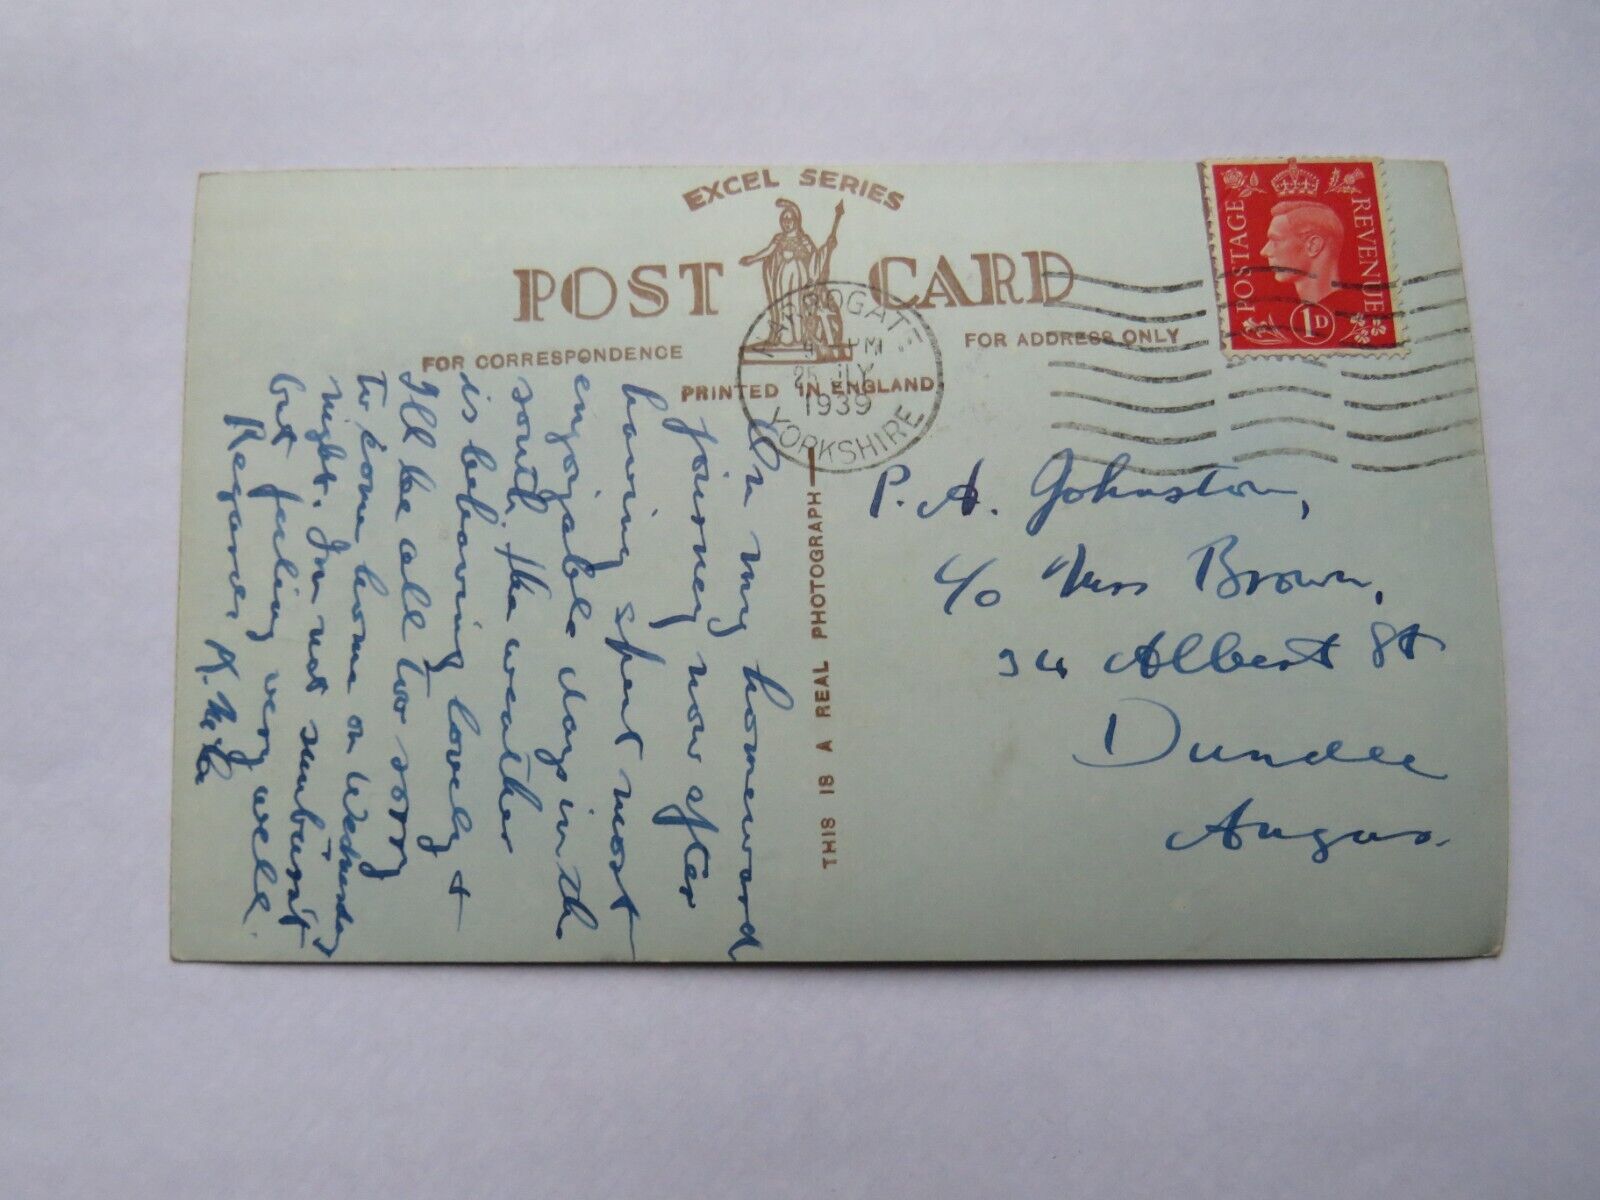 EXCEL SERIES
POST CARD
FOR CORRESPONDENCE
FOR ADDRESS ONLY
PRINTED IN ENGLAND
THIS IS A REAL PHOTOGRAPH
HARROGATE
PM
25 JLY
1939
YORKSHIRE
POSTAGE
REVENUE
1D
On my homeward
journey now after
having spent most
enjoyable days in the
south. The weather
is behaving lovely &
I'll be all too sorry
to come home on Wednesday
night. I'm not sunburnt
but feeling very well.
Regards
P. A. Johnston,
c/o Miss Brown,
34 Albert St
Dundee
Angus.